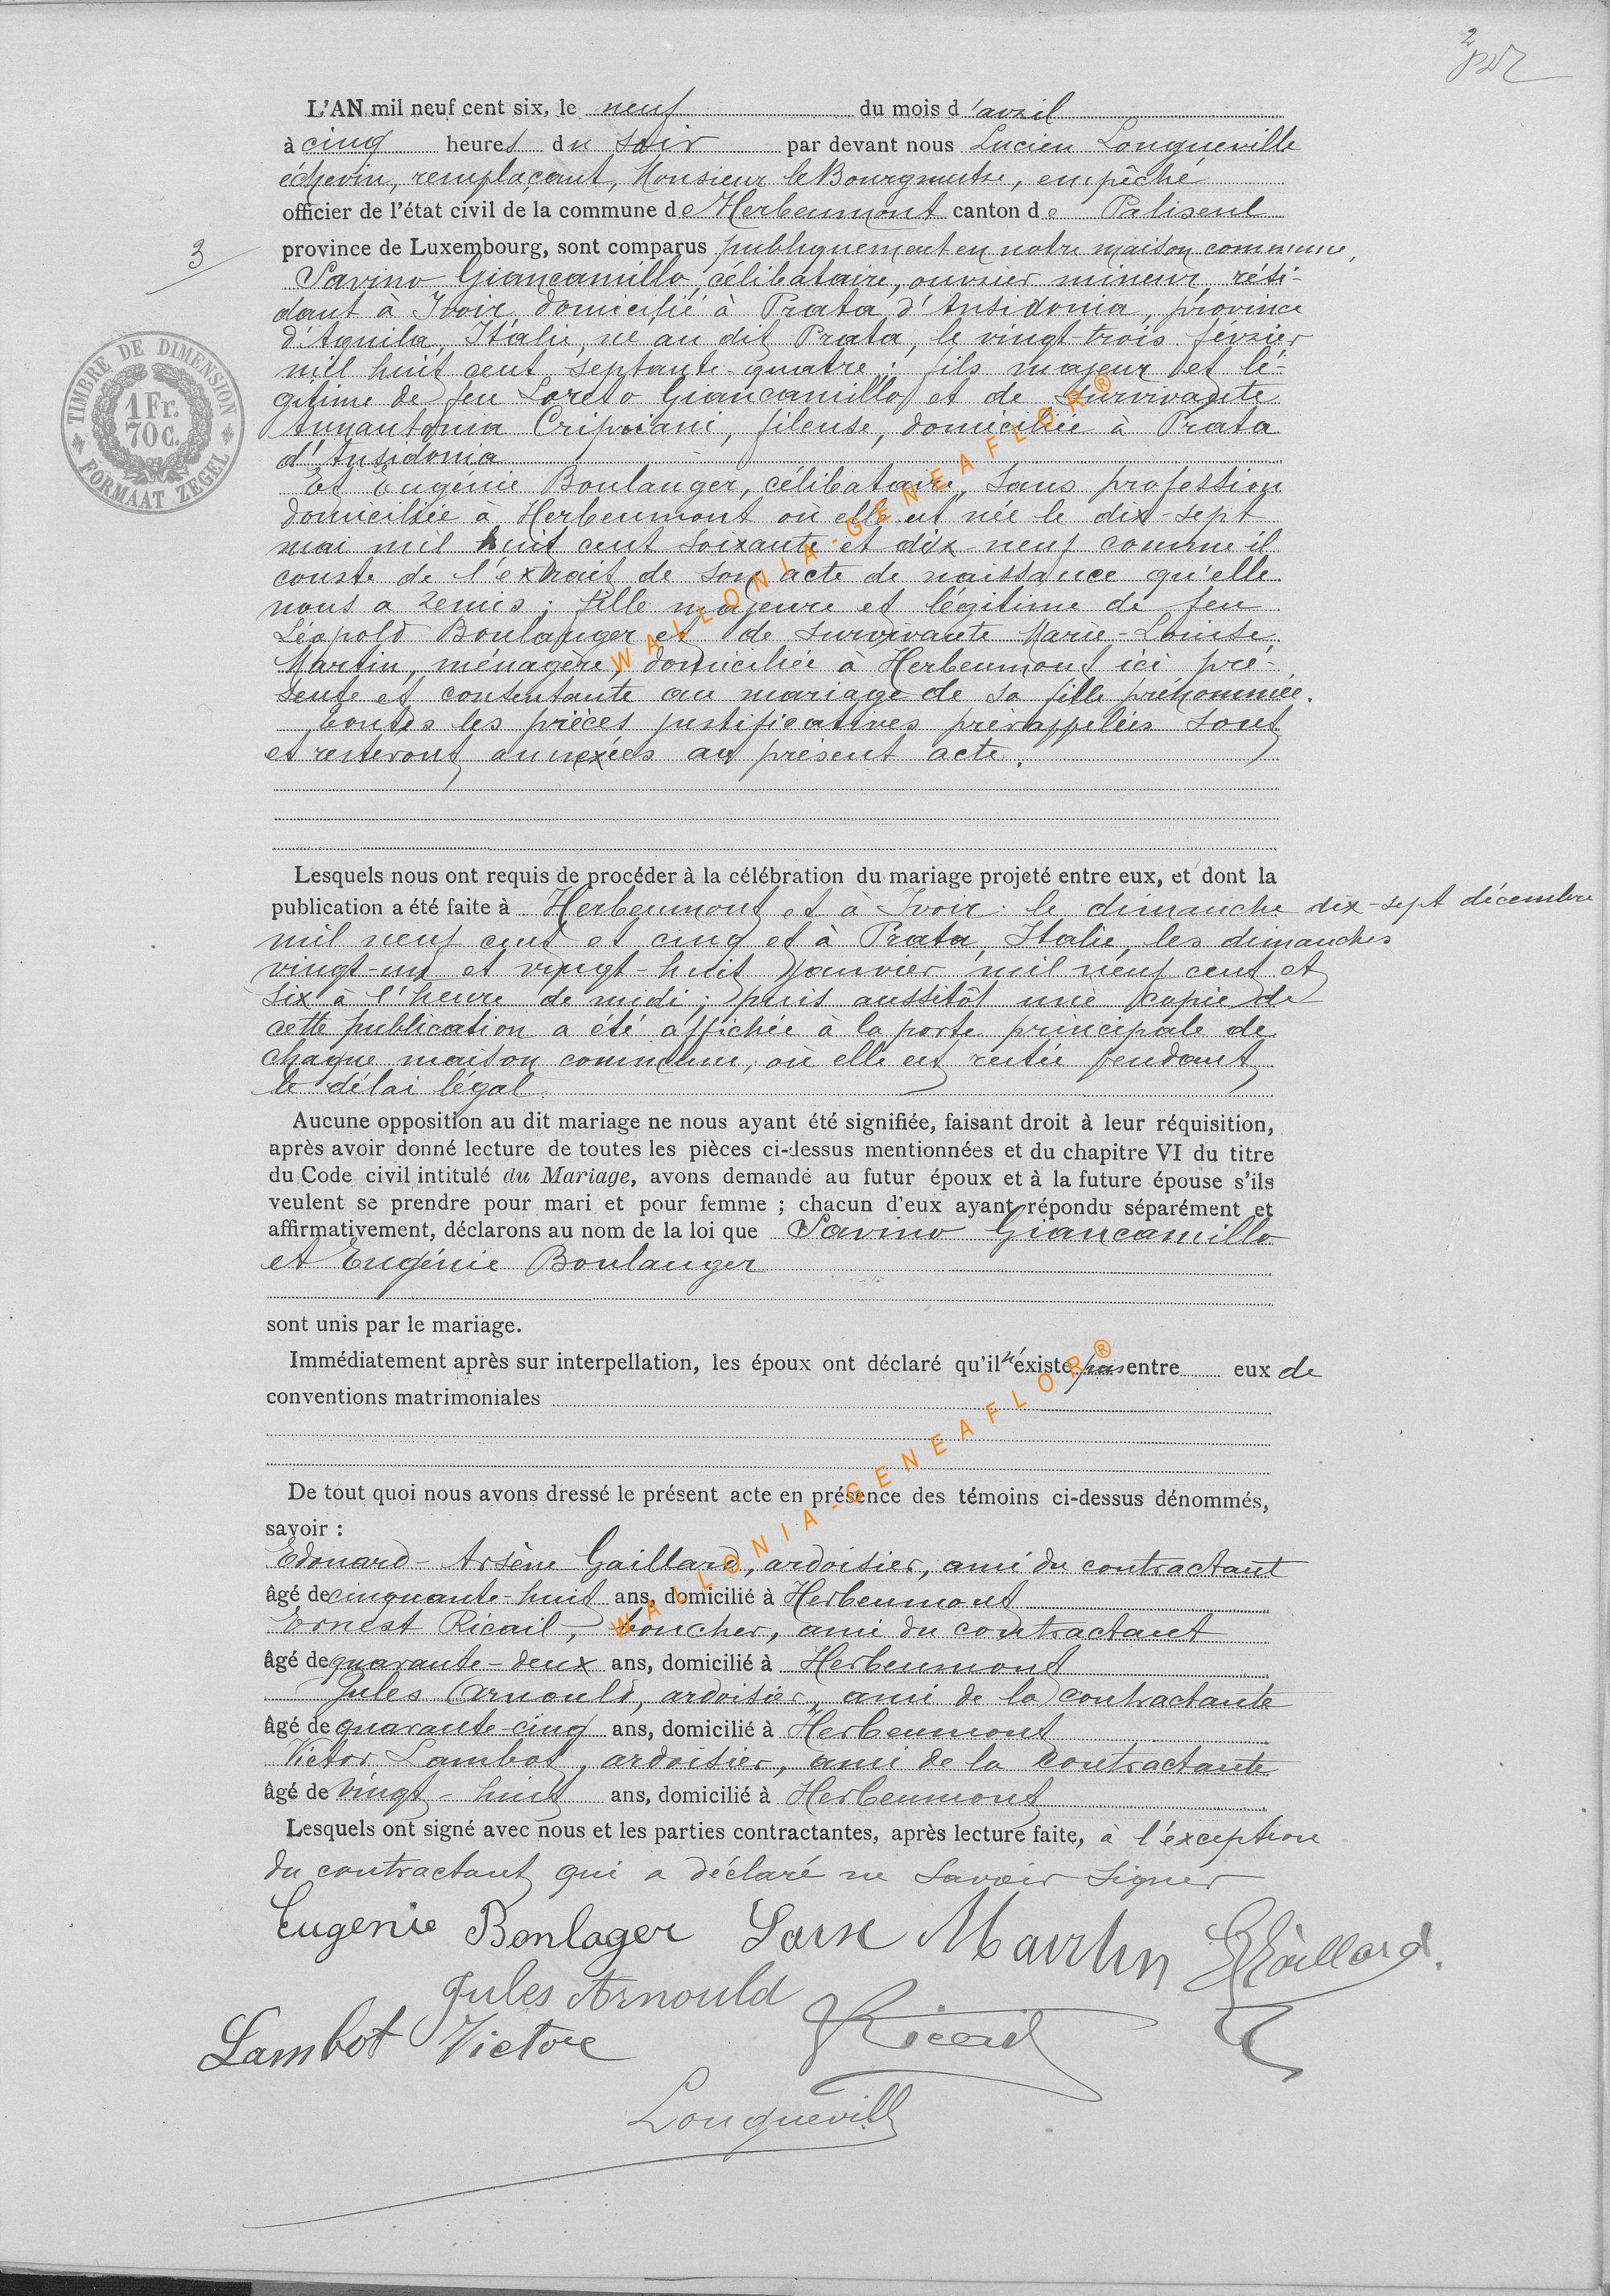 2
L'AN mil neuf cent six, le neuf du mois d'avril
à cinq heures du soir par devant nous Lucien Longueville
échevin, remplaçant, Monsieur le Bourgmestre, empêché
officier de l'état civil de la commune de Herbeumont canton de Paliseul
3
province de Luxembourg, sont comparus publiquement en notre maison commune,
Savino Giancamillo, célibataire, ouvrier mineur, rési-
dant à Ivoir domicilié à Prata d'Ansidonia, province
d'Aquila, Italie, né au dit Prata, le vingt-trois février
mil huit cent septante-quatre; fils majeur et lé-
gitime de feu Loreto Giancamillo et de survivante
Annantonia Cripiani, fileuse, domiciliée à Prata
d'Ansidonia
TIMBRE DE DIMENSION
1 Fr.
70 c.
FORMAAT ZEGEL
Et Eugénie Boulanger, célibataire, sans profession
domiciliée à Herbeumont où elle est née le dix-sept
mai mil huit cent soixante et dix-neuf comme il
conste de l'extrait de son acte de naissance qu'elle
nous a remis; fille majeure et légitime de feu
Léopold Boulanger et de survivante Marie-Louise
Martin, ménagère, domiciliée à Herbeumont ici pré-
sente et consentante au mariage de sa fille prénommée.
toutes les pièces justificatives prérappelées sont
et resteront annexées au présent acte.
Lesquels nous ont requis de procéder à la célébration du mariage projeté entre eux, et dont la
publication a été faite à Herbeumont et à Ivoir le dimanche dix-sept décembre
mil neuf cent et cinq et à Prata, Italie, les dimanches
vingt-un et vingt-huit janvier mil neuf cent et
six à l'heure de midi; puis aussitôt une copie de
cette publication a été affichée à la porte principale de
chaque maison commune, où elle est restée pendant
le délai légal
Aucune opposition au dit mariage ne nous ayant été signifiée, faisant droit à leur réquisition,
après avoir donné lecture de toutes les pièces ci-dessus mentionnées et du chapitre VI du titre
du Code civil intitulé du Mariage, avons demandé au futur époux et à la future épouse s'ils
veulent se prendre pour mari et pour femme ; chacun d'eux ayant répondu séparément et
affirmativement, déclarons au nom de la loi que Savino Giancamillo
et Eugénie Boulanger
sont unis par le mariage.
Immédiatement après sur interpellation, les époux ont déclaré qu'il n'existe pas entre eux de
conventions matrimoniales
De tout quoi nous avons dressé le présent acte en présence des témoins ci-dessus dénommés,
savoir :
Edouard-Arsène Gaillard, ardoisier, ami du contractant
âgé de cinquante-huit ans, domicilié à Herbeumont
Ernest Ricail, boucher, ami du contractant
âgé de quarante-deux ans, domicilié à Herbeumont
Jules Arnould, ardoisier, ami de la contractante
âgé de quarante-cinq ans, domicilié à Herbeumont
Victor Lambot, ardoisier, ami de la contractante
âgé de vingt-huit ans, domicilié à Herbeumont
Lesquels ont signé avec nous et les parties contractantes, après lecture faite, à l'exception
du contractant qui a déclaré ne savoir signer
Eugenie Bonlager Martin Gaillard.
Jules Arnould
Lambot Victor Ricail
Longueville
WALLONIA-GENEAFLOR®
WALLONIA-GENEAFLOR®